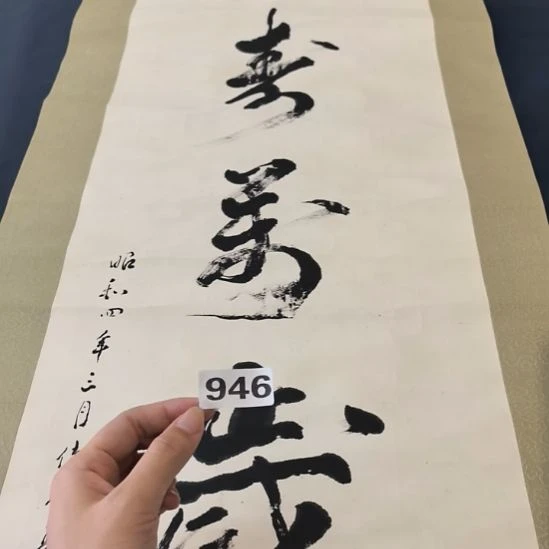 寿萬歳
昭和四年三月
946